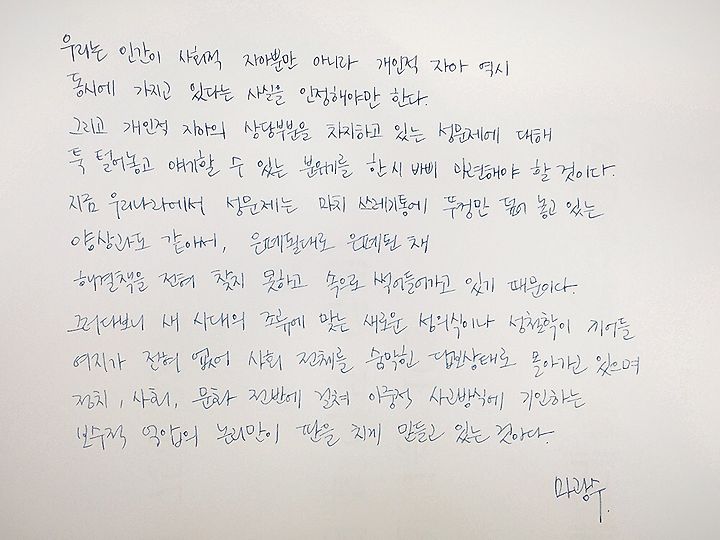 우리는 인간이 사회적 자아뿐만 아니라 개인적 자아 역시
동시에 가지고 있다는 사실을 인정해야만 한다.
그리고 개인적 자아의 상당부분을 차지하고 있는 성문제에 대해
툭 털어놓고 얘기할 수 있는 분위기를 한시 바삐 마련해야 할 것이다.
지금 우리나라에서 성문제는 마치 쓰레기통에 뚜껑만 덮어 놓고 있는
양상과도 같아서, 은폐될대로 은폐된 채
해결책을 전혀 찾지 못하고 속으로 썩어들어가고 있기 때문이다.
그러다보니 새 시대의 조류에 맞는 새로운 성의식이나 성철학이 끼어들
여지가 전혀 없어 사회 전체를 숨막힌 답보상태로 몰아가고 있으며
정치, 사회, 문화 전반에 걸쳐 이중적 사고방식에 기인하는
보수적 억압의 논리만이 판을 치게 만들고 있는 것이다.
마광수.